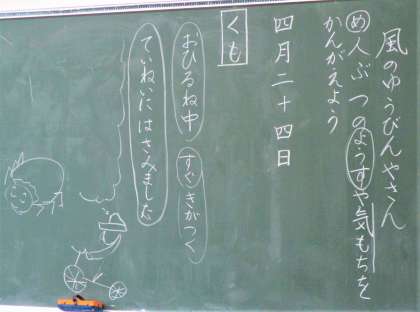 風のゆうびんやさん
め 人ぶつのようすや気もちを
かんがえよう
四月二十四日
くも
おひるね中 すぐきがつく
ていねいにはさみました